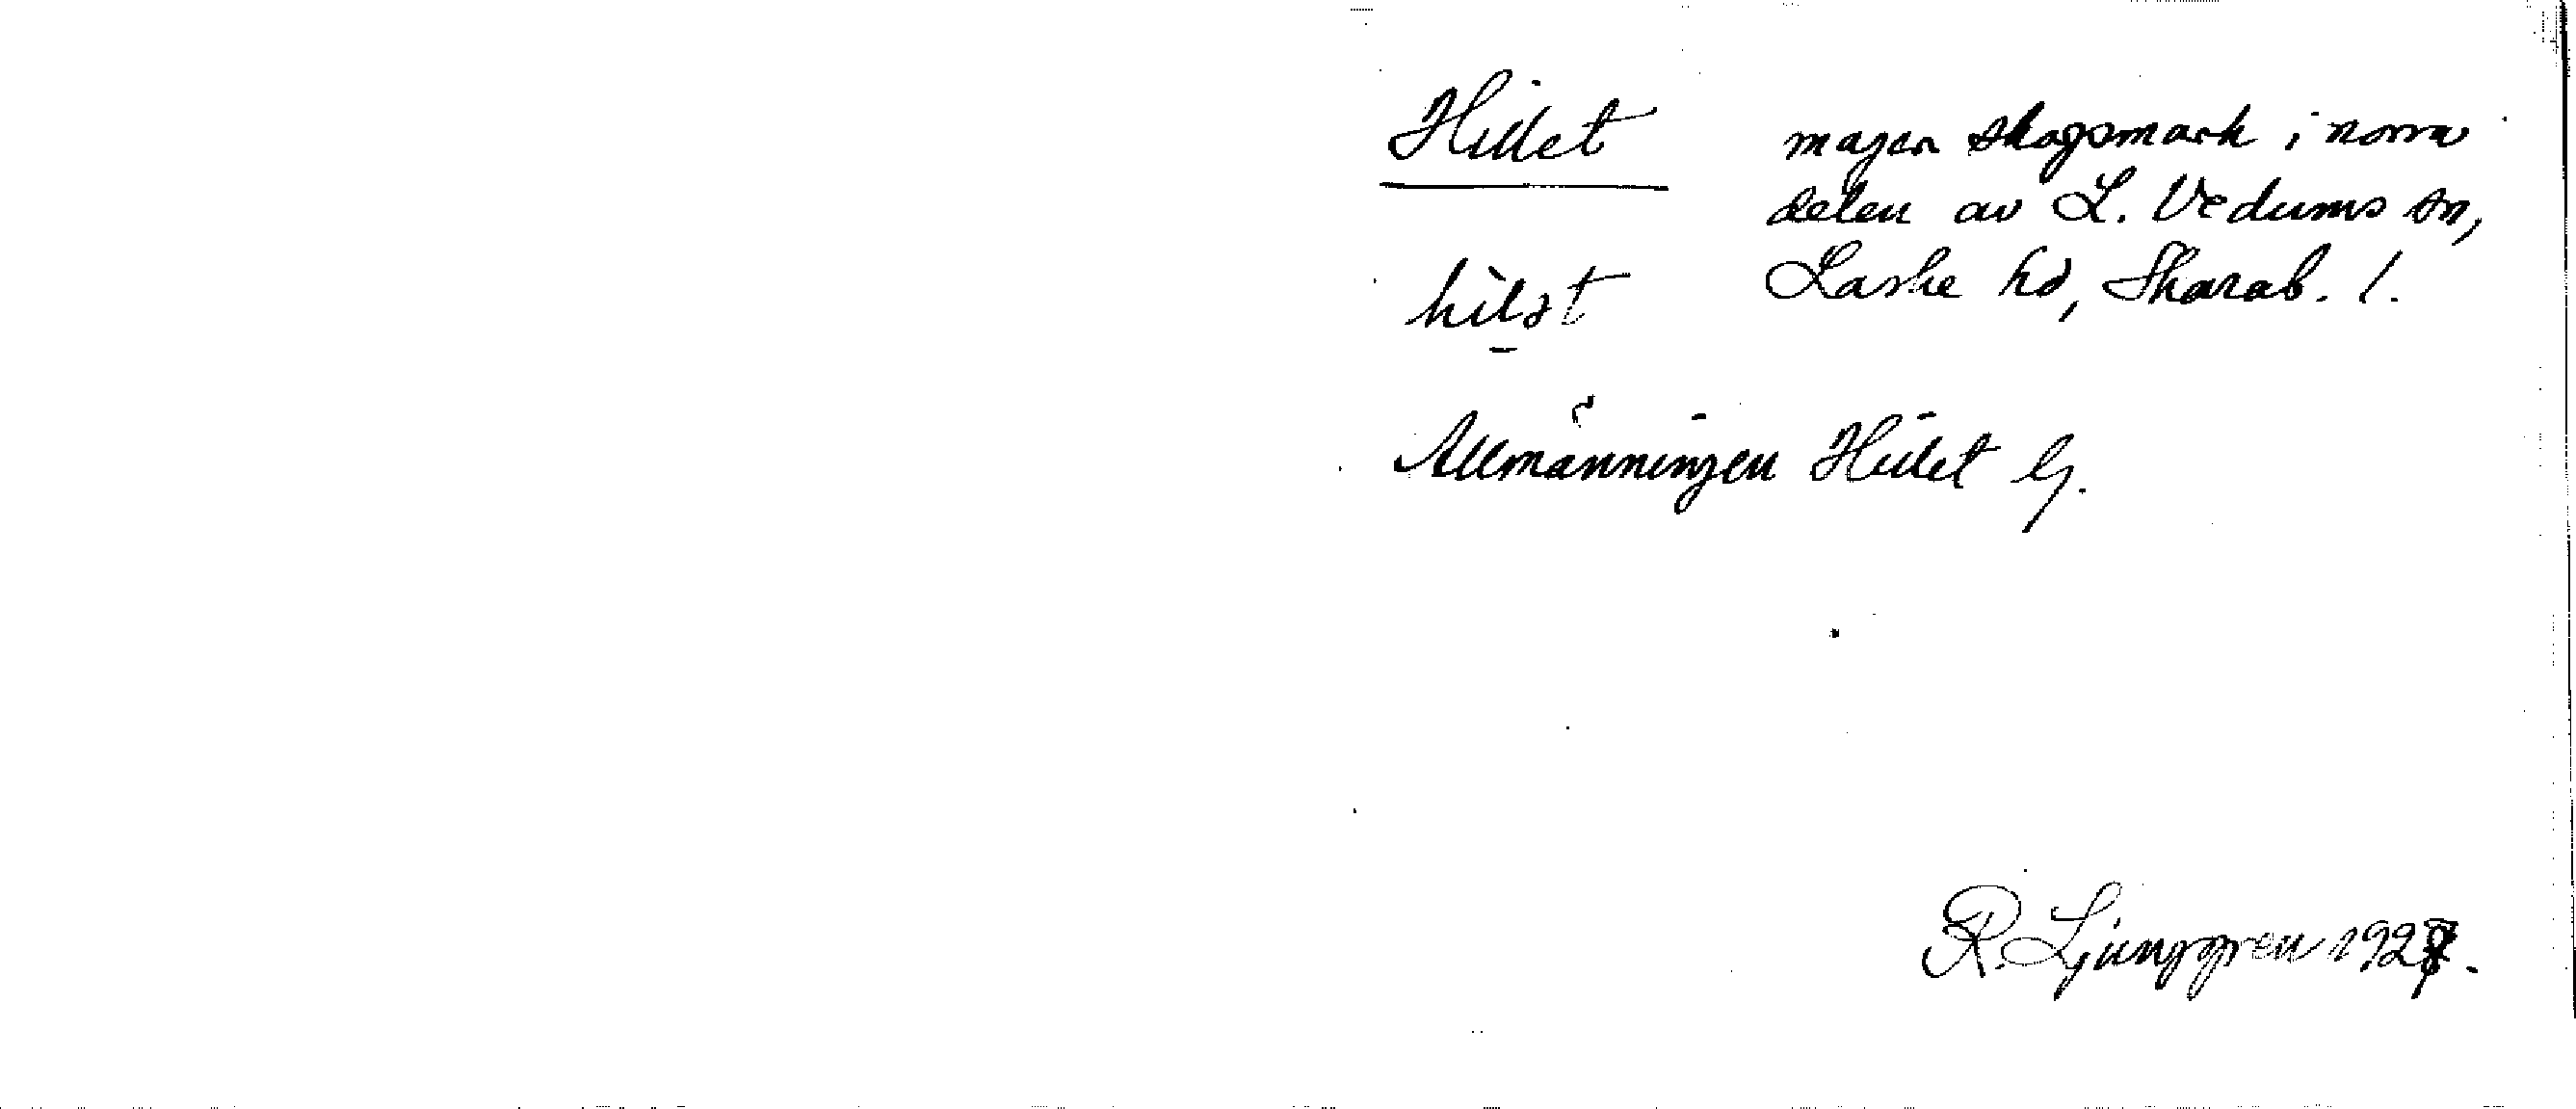 Hillet
mager skogsmark i norra
delen av L. Vedums sn,
Laske hd, Skarab. l.
hìlət
Allmänningen Hillet G.
R. Ljunggren 1927.